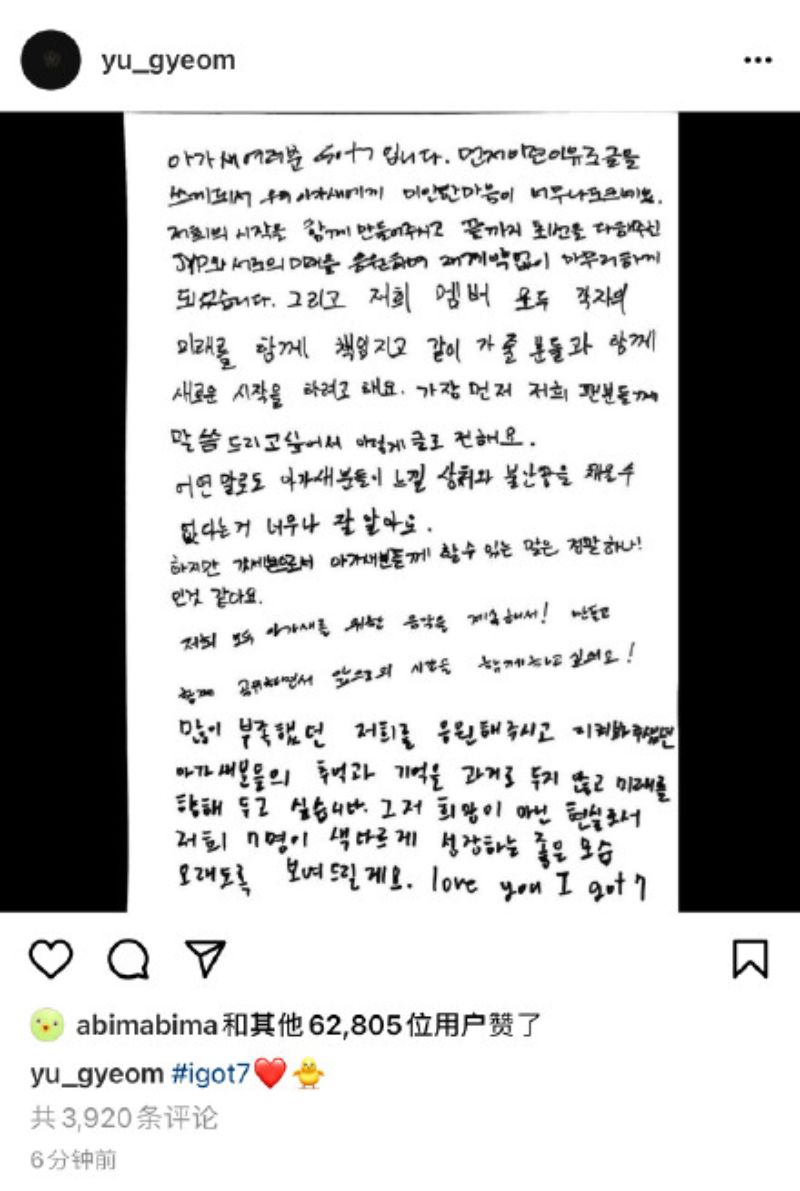 yu_gyeom
아가새여러분 Got7 입니다. 먼저이런이유로글을
쓰게되서 우리아가새에게 미안한마음이 너무나도크네요.
저희의 시작을 함께 만들어주시고 끝까지 최선을 다해주신
JYP와 서로의미래를 응원하며 재계약없이 마무리하게
되었습니다. 그리고 저희 멤버 모두 각자의
미래를 함께 책임지고 같이 가 줄 분들과 함께
새로운 시작을 하려고 해요. 가장먼저 저희 팬분들께
말씀드리고싶어서 이렇게 글로 전해요.
어떤말로도 아가새분들이 느낄 상처와 불안감을 채울수
없다는거 너무나 잘 알아요.
하지만 갓세븐으로서 아가새분들께 할수 있는 말은 정말하나!
인것 같아요.
저희 모두 아가새를 위한 음악을 계속해서! 만들고
함께 공유하면서 앞으로의 시간을 함께하고싶어요!
많이 부족했던 저희를 응원해주시고 지켜봐주셨던
아가새분들의 추억과 기억을 과거로 두지 않고 미래를
향해 두고 싶습니다. 그저 희망이 아닌 현실로서
저희 7명이 색다르게 성장하는 좋은 모습
오래도록 보여드릴게요. love you I got 7
abimabima和其他 62,805位用户赞了
yu_gyeom #igot7❤️🐥
共 3,920 条评论
6分钟前